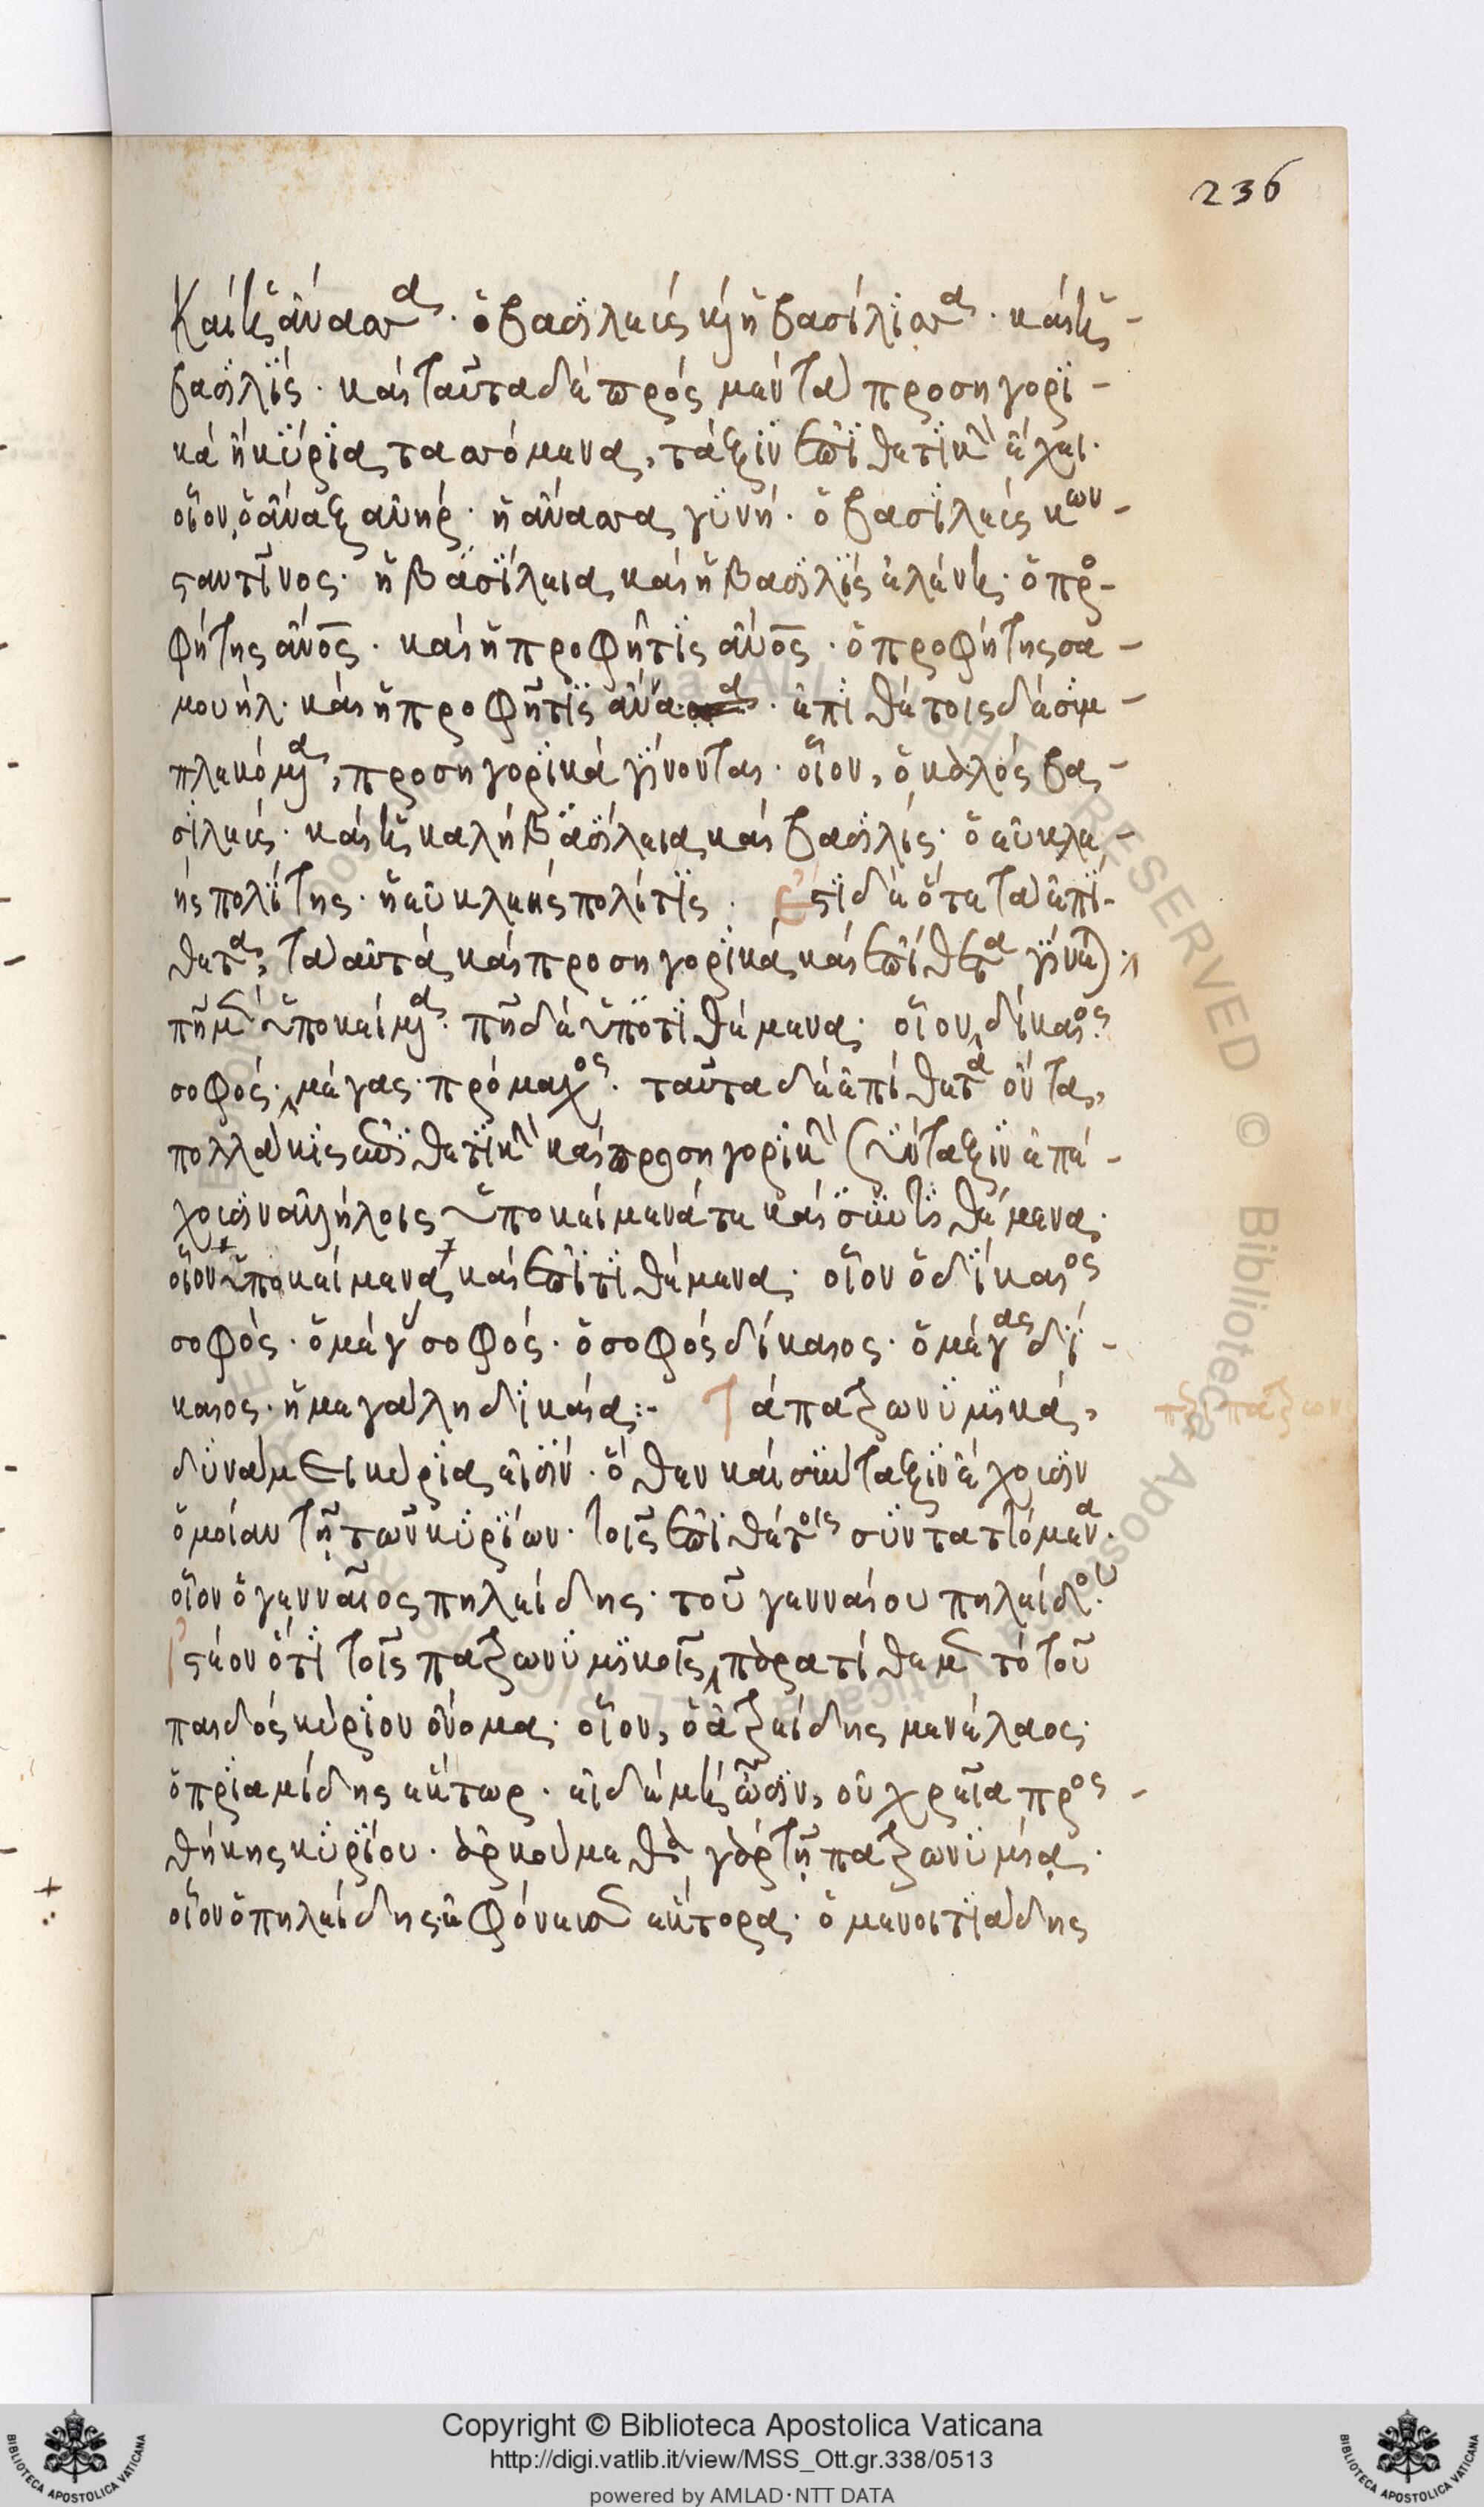 236
Καὶ ἡ ἄνασσα. ὁ βασιλεὺς καὶ ἡ βασίλισσα. καὶ ἡ -
βασιλίς. καὶ ταῦτα δὲ πρὸς μὲν τὰ προσηγορι -
κὰ ἢ κύρια τασσόμενα, τάξιν ἐπιθετικὴν ἔχει.
οἷον, ὁ ἄναξ ἀνήρ. ἡ ἄνασσα γυνή. ὁ βασιλεὺς κων -
σταντῖνος. ἡ βασίλεια καὶ ἡ βασιλὶς ἑλένη. ὁ προ -
φήτης ἄνος. καὶ ἡ προφῆτις ἄνος. ὁ προφήτης σα -
μουήλ. καὶ ἡ προφῆτις ἄννα. ἐπιθέτοις δὲ συμ -
πλεκόμενα, προσηγορικὰ γίνονται. οἷον, ὁ καλὸς βα -
σιλεύς. καὶ ἡ καλὴ βασίλεια καὶ βασιλίς. ὁ εὐκλε -
ὴς πολίτης. ἡ εὐκλεὴς πολῖτις. ἔστι δὲ ὅτε τὰ ἐπί -
θετα, τὰ αὐτὰ καὶ προσηγορικὰ καὶ ἐπίθετα γίνεται.
πῆ μὲν ὑποκείμενα. πῆ δὲ ὑποτιθέμενα. οἷον, δίκαιος.
σοφός. μέγας. πρόμαχος. ταῦτα δὲ ἐπίθετα ὄντα,
πολλάκις ἐπιθετικὴν καὶ προσηγορικὴν σύνταξιν ἐπέ -
χουσιν ἀλλήλοις ὑποκείμενά τε καὶ συντιθέμενα.
οἷον ὑποκείμενα καὶ ἐπιτιθέμενα. οἷον ὁ δίκαιος
σοφός. ὁ μέγας σοφός. ὁ σοφὸς δίκαιος. ὁ μέγας δί -
καιος. ἡ μεγάλη δικαία:- Τὰ πατρωνυμικά,
δυνάμει κύρια εἰσίν. ὅθεν καὶ σύνταξιν ἔχουσιν
ὁμοίαν τῇ τῶν κυρίων. τοῖς ἐπιθέτοις συντατόμενα.
οἷον ὁ γενναῖος πηλείδης. τοῦ γενναίου πηλείδου.
Ἰστέον ὅτι τοῖς πατρωνυμικοῖς, παρατίθεμεν τὸ τοῦ
παιδὸς κύριον ὄνομα. οἷον, ὁ ἀτρείδης μενέλαος.
ὁ πριαμίδης ἕκτωρ. εἰ δὲ μὴ ὦσιν, οὐ χρεία προς -
θήκης κυρίου. ἀρκούμεθα γὰρ τῇ πατρωνυμίᾳ.
οἷον ὁ πηλείδης ἐφόνευσεν ἕκτορα. ὁ μενοιτιάδης
Copyright © Biblioteca Apostolica Vaticana
http://digi.vatlib.it/view/MSS_Ott.gr.338/0513
powered by AMLAD·NTT DATA